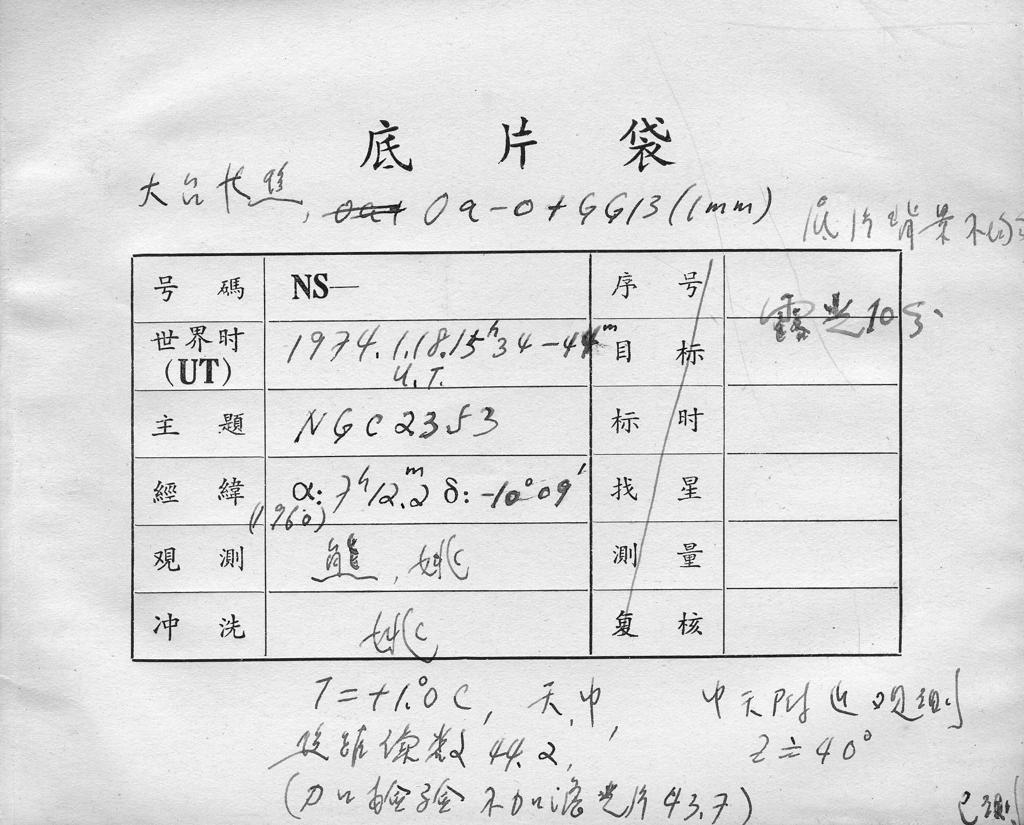 底片袋
大台卡焦, Oa-O+GG13(1mm)
底片背景不均
号碼 NS— 序号
露光10分
世界时(UT) 1974.1.18.15ʰ34-44ᵐ U.T. 目标
主題 NGC2353 标时
經緯 α: 7ʰ12.ᵐ2 δ: -10°09′ 找星
(1960)
观測 熊, 姚 測量
冲洗 姚 复核
T=+1.°0C, 天中, 中天附近观测
44.2, Z≑40°
不加滤光片43.7)
已测